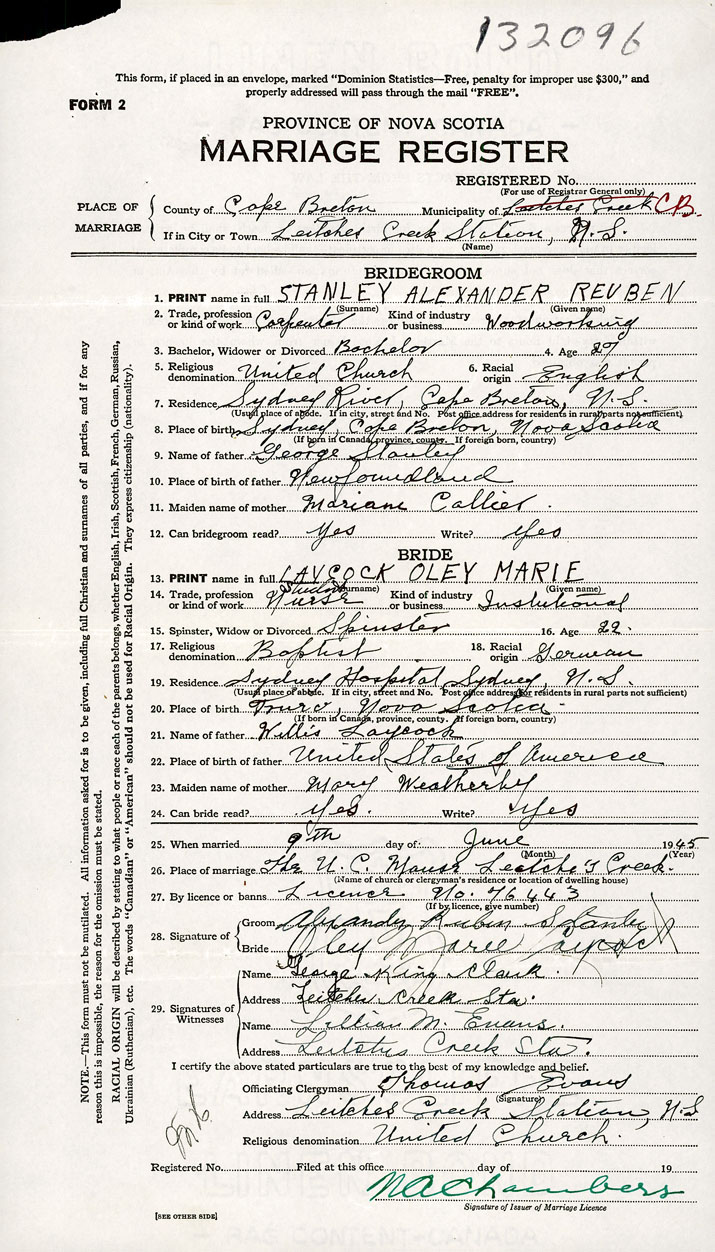 132096
This form, if placed in an envelope, marked "Dominion Statistics—Free, penalty for improper use $300," and
properly addressed will pass through the mail "FREE".
FORM 2
PROVINCE OF NOVA SCOTIA
MARRIAGE REGISTER
REGISTERED No.
(For use of Registrar General only)
PLACE OF MARRIAGE
County of Cape Breton Municipality of Leitches Creek C.B.
If in City or Town Leitches Creek Station, N.S.
(Name)
BRIDEGROOM
1. PRINT name in full STANLEY ALEXANDER REUBEN
(Surname) (Given name)
2. Trade, profession or kind of work Carpenter Kind of industry or business Woodworking
3. Bachelor, Widower or Divorced Bachelor 4. Age 27
5. Religious denomination United Church 6. Racial origin English
7. Residence Sydney River, Cape Breton, N.S.
(Usual place of abode. If in city, street and No. Post office address for residents in rural parts not sufficient)
8. Place of birth Sydney, Cape Breton, Nova Scotia
(If born in Canada, province, county. If foreign born, country)
9. Name of father George Stanley
10. Place of birth of father Newfoundland
11. Maiden name of mother Mariane Callier
12. Can bridegroom read? Yes Write? Yes
BRIDE
13. PRINT name in full LAYCOCK OLEY MARIE
(Surname) (Given name)
14. Trade, profession or kind of work Student Nurse Kind of industry or business Instutional
15. Spinster, Widow or Divorced Spinster 16. Age 22.
17. Religious denomination Baptist 18. Racial origin German
19. Residence Sydney Hospital Sydney, N.S.
(Usual place of abode. If in city, street and No. Post office address for residents in rural parts not sufficient)
20. Place of birth Truro, Nova Scotia
(If born in Canada, province, county. If foreign born, country)
21. Name of father Willis Laycock
22. Place of birth of father United States of America
23. Maiden name of mother Mary Weatherby
24. Can bride read? Yes. Write? Yes
25. When married 9th day of June 1945
(Month) (Year)
26. Place of marriage The U.C. Manse Leitche's Creek.
(Name of church or clergyman's residence or location of dwelling house)
27. By licence or banns Licence No. 76443
(If by licence, give number)
28. Signature of
Groom Alexander Rubin Stanley
Bride Oley Marie Laycock
29. Signatures of Witnesses
Name George King Clark.
Address Leitches Creek Sta.
Name Lillian M. Evans.
Address Leitches Creek Sta.
I certify the above stated particulars are true to the best of my knowledge and belief.
Officiating Clergyman Thomas Evans
(Signature)
Address Leitches Creek Station, N.S
Religious denomination United Church.
Registered No. Filed at this office day of 19
NAChambers
Signature of Issuer of Marriage Licence
[SEE OTHER SIDE]
NOTE.—This form must not be mutilated. All information asked for is to be given, including full Christian and surnames of all parties, and if for any
reason this is impossible, the reason for the omission must be stated.
RACIAL ORIGIN will be described by stating to what people or race each of the parents belongs, whether English, Irish, Scottish, French, German, Russian,
Ukrainian (Ruthenian), etc. The words "Canadian" or "American" should not be used for Racial Origin. They express citizenship (nationality).